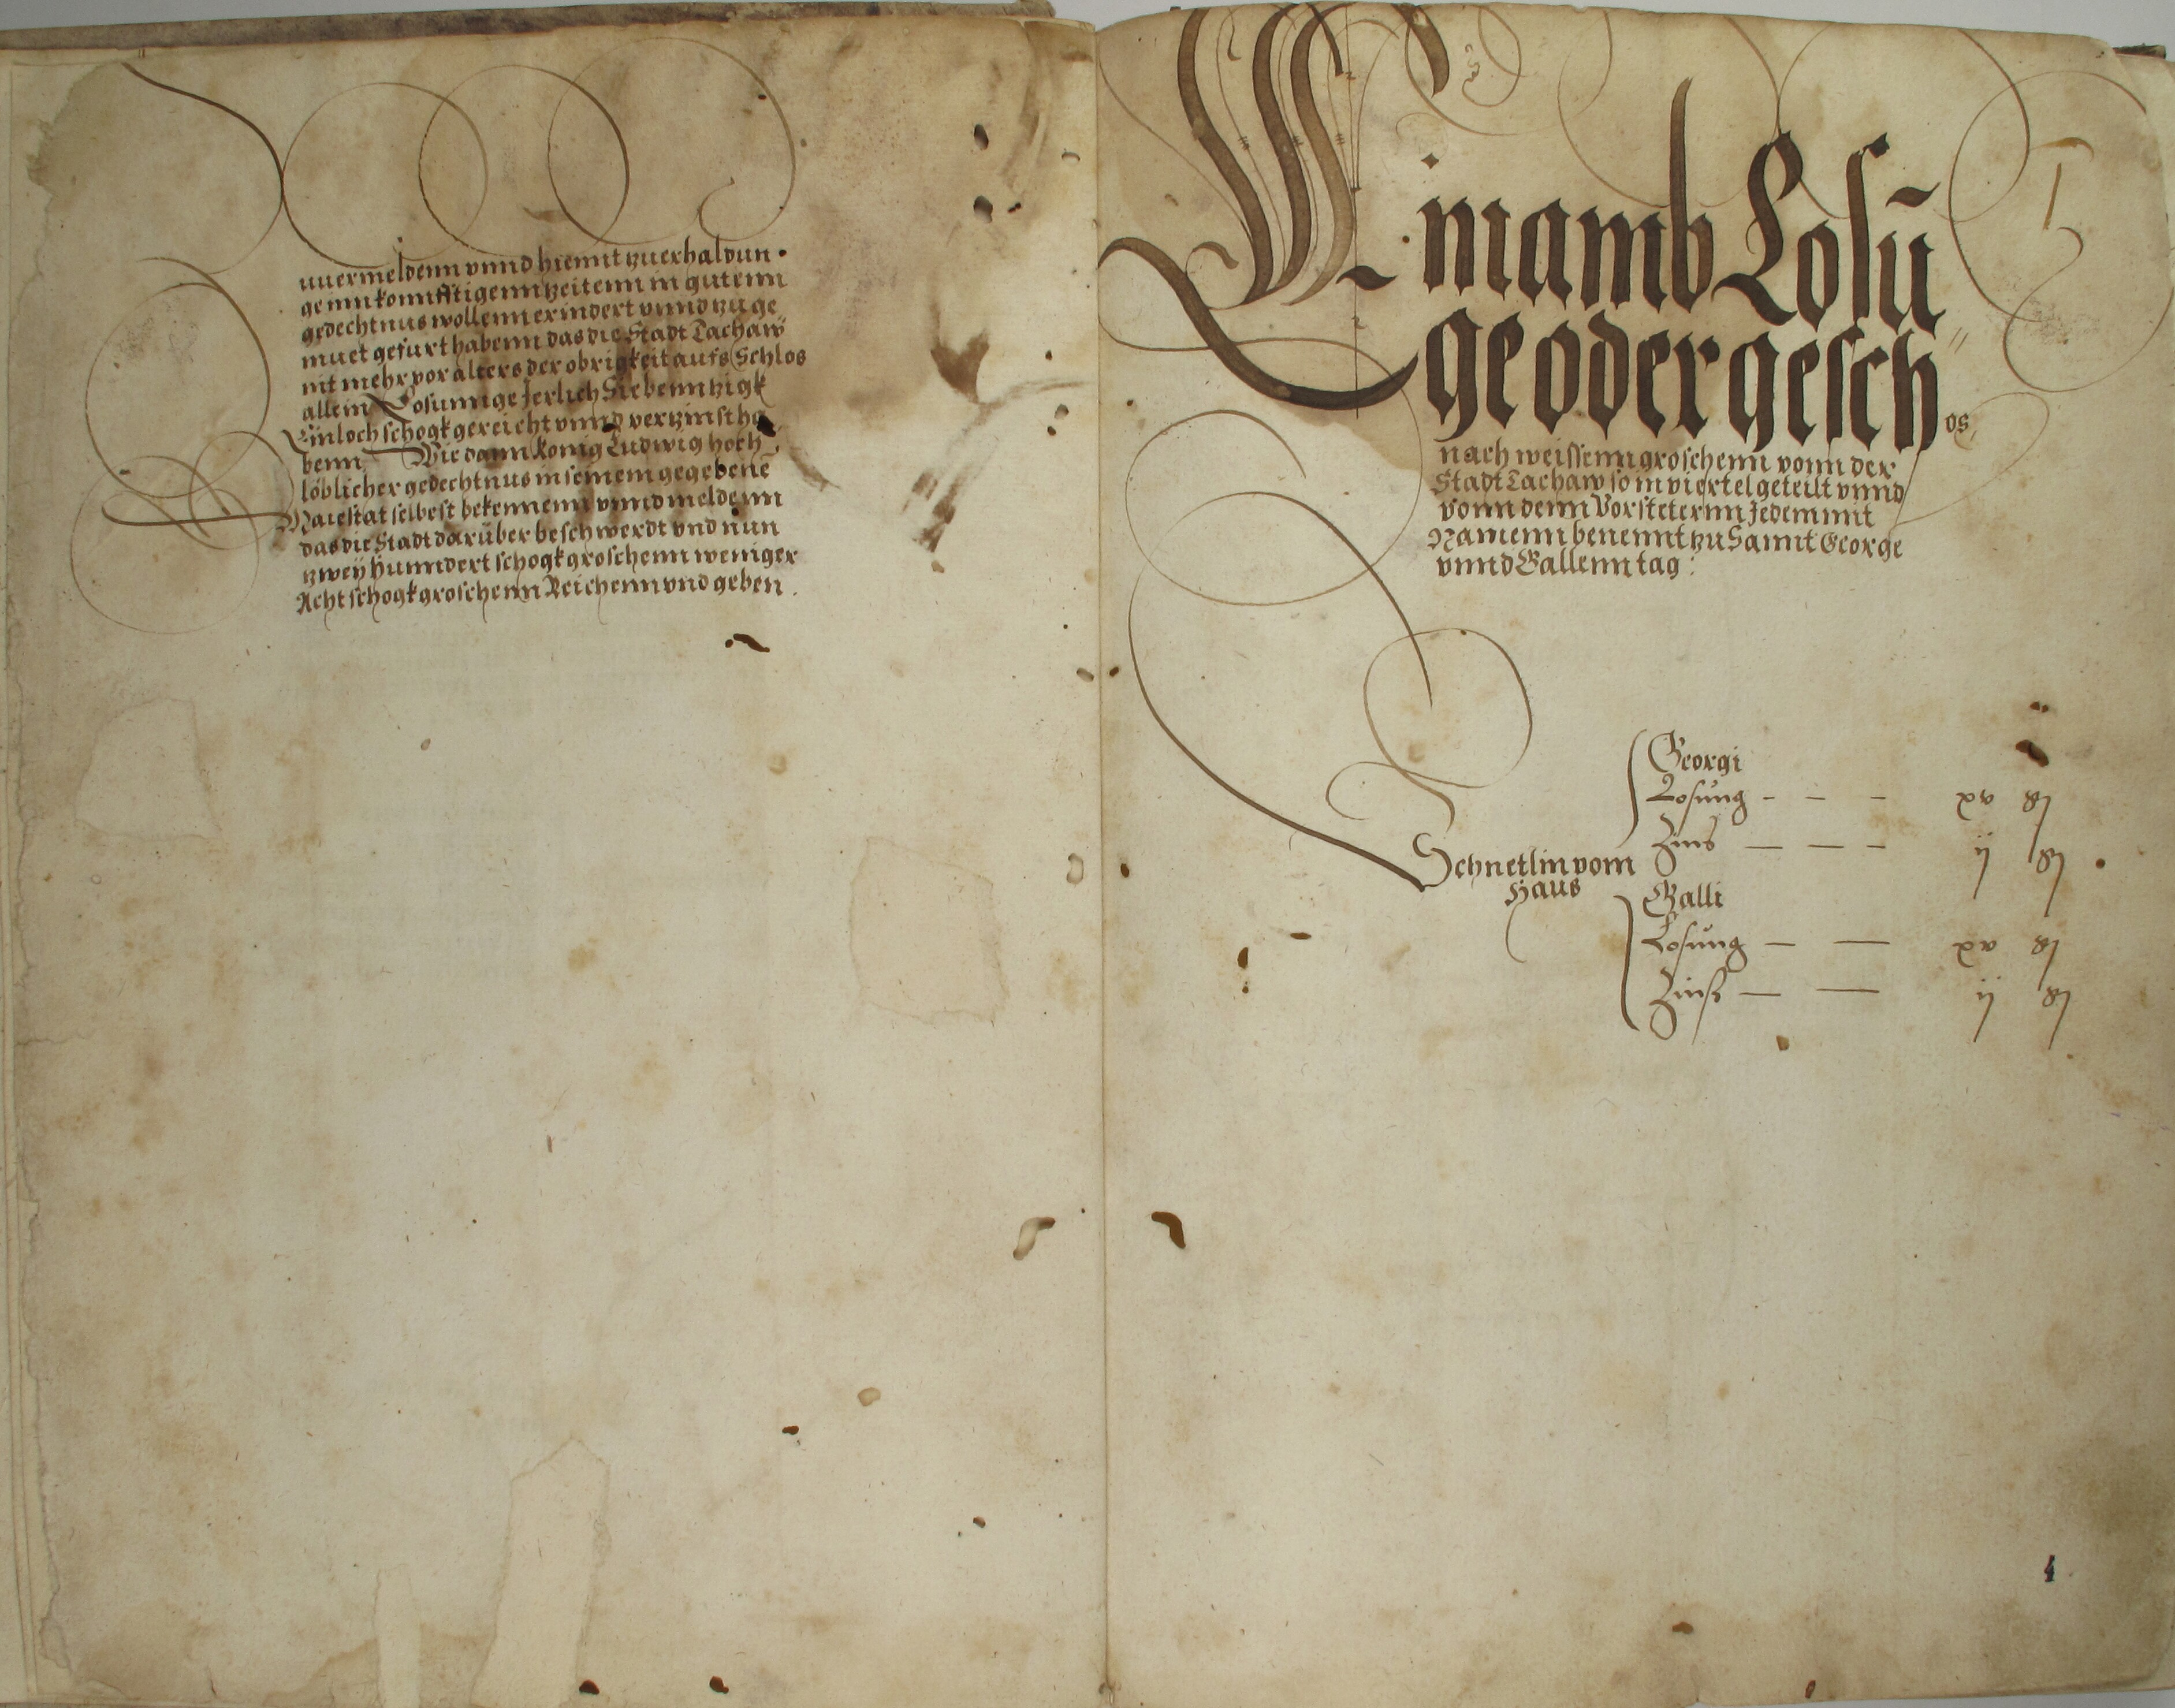 uuermeldenn vnnd hiemit zuerhaldun
genn konnfftigenn zeitenn in gutenn
gedechtnus wollenn erindert vnnd zu ge
muet gefurt habenn das die Stadt Tachaw
nit mehr vor alters der obrigkeit aufs Schlos
allein Losunnge Jerlich Siebenntzigk
Einloch schogk gereicht vnnd vertzinst ha
benn Wie dann konig Ludwig hoch
löblicher gedechtnus in seinem gegebene
Maiestat selbest bekennenn vnnd meldenn
das die Stadt darüber beschwerdt vnd nun
zweÿ hunndert schogk groschenn weniger
Acht schogk groschenn Reichenn vnd geben
Einnamb Losū
ge oder gesch
os
nach weissenn groschenn vonn der
Stadt Tachaw so in viertel geteilt vnnd
vonn denn Vorstetern Jedem mit
Namenn benennt zu Sannt George
vnnd Gallenn tag :
Georgi
Losung - - - xv gl
Zins - - - ij gl
Schnetlin vom
Haus
Galli
Losung - - xv gl
Zinß - - ij gl
4